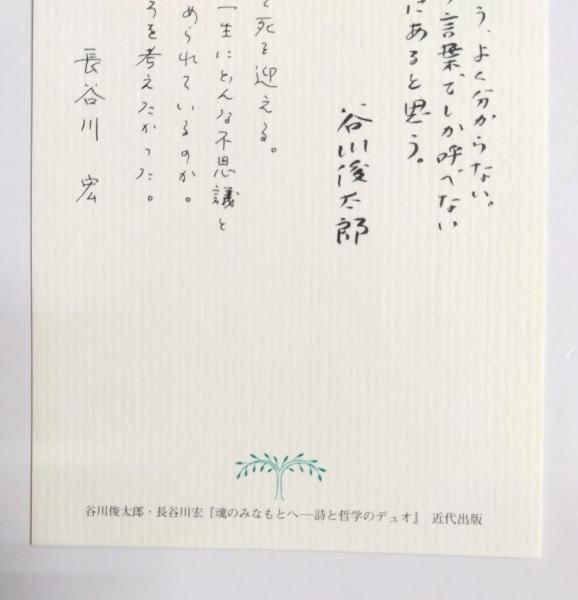 う、よく分からない。
言葉でしか呼べない
にあると思う。
谷川俊太郎
死を迎える。
一生にどんな不思議と
められているのか。
ろを考えたかった。
長谷川 宏
谷川俊太郎・長谷川宏『魂のみなもとへ―詩と哲学のデュオ』 近代出版